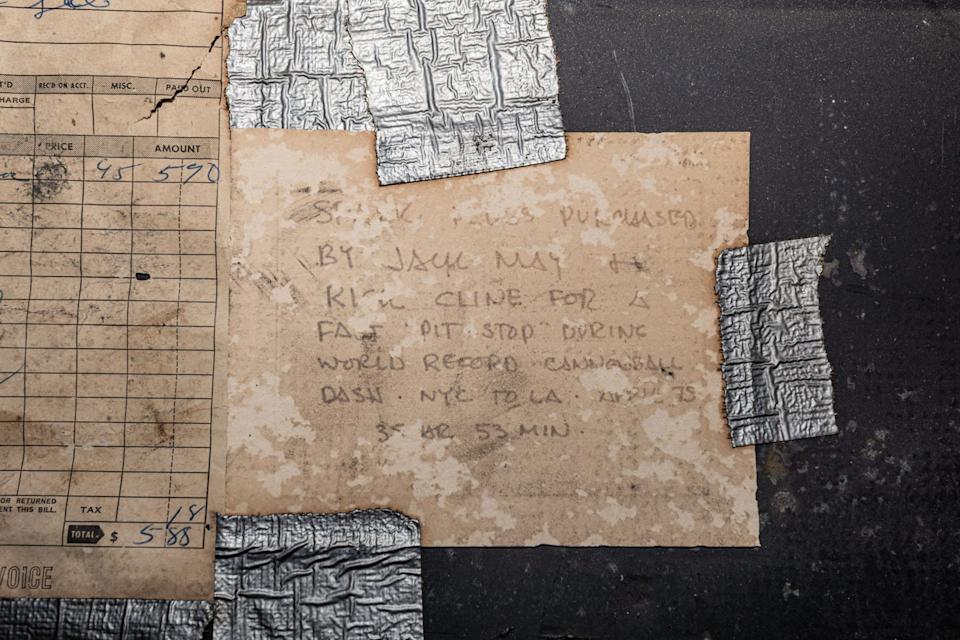 REC'D ON ACCT. MISC. PAID OUT
CHARGE
PRICE AMOUNT
95 5 70
OR RETURNED
ENT THIS BILL. TAX 18
TOTAL $ 5 88
VOICE
PURCHASED
BY JACK MAY &
RICK CLINE FOR A
FAST "PIT STOP" DURING
WORLD RECORD CANNONBALL
DASH · NYC TO LA · APRIL 75
35 HR 53 MIN.